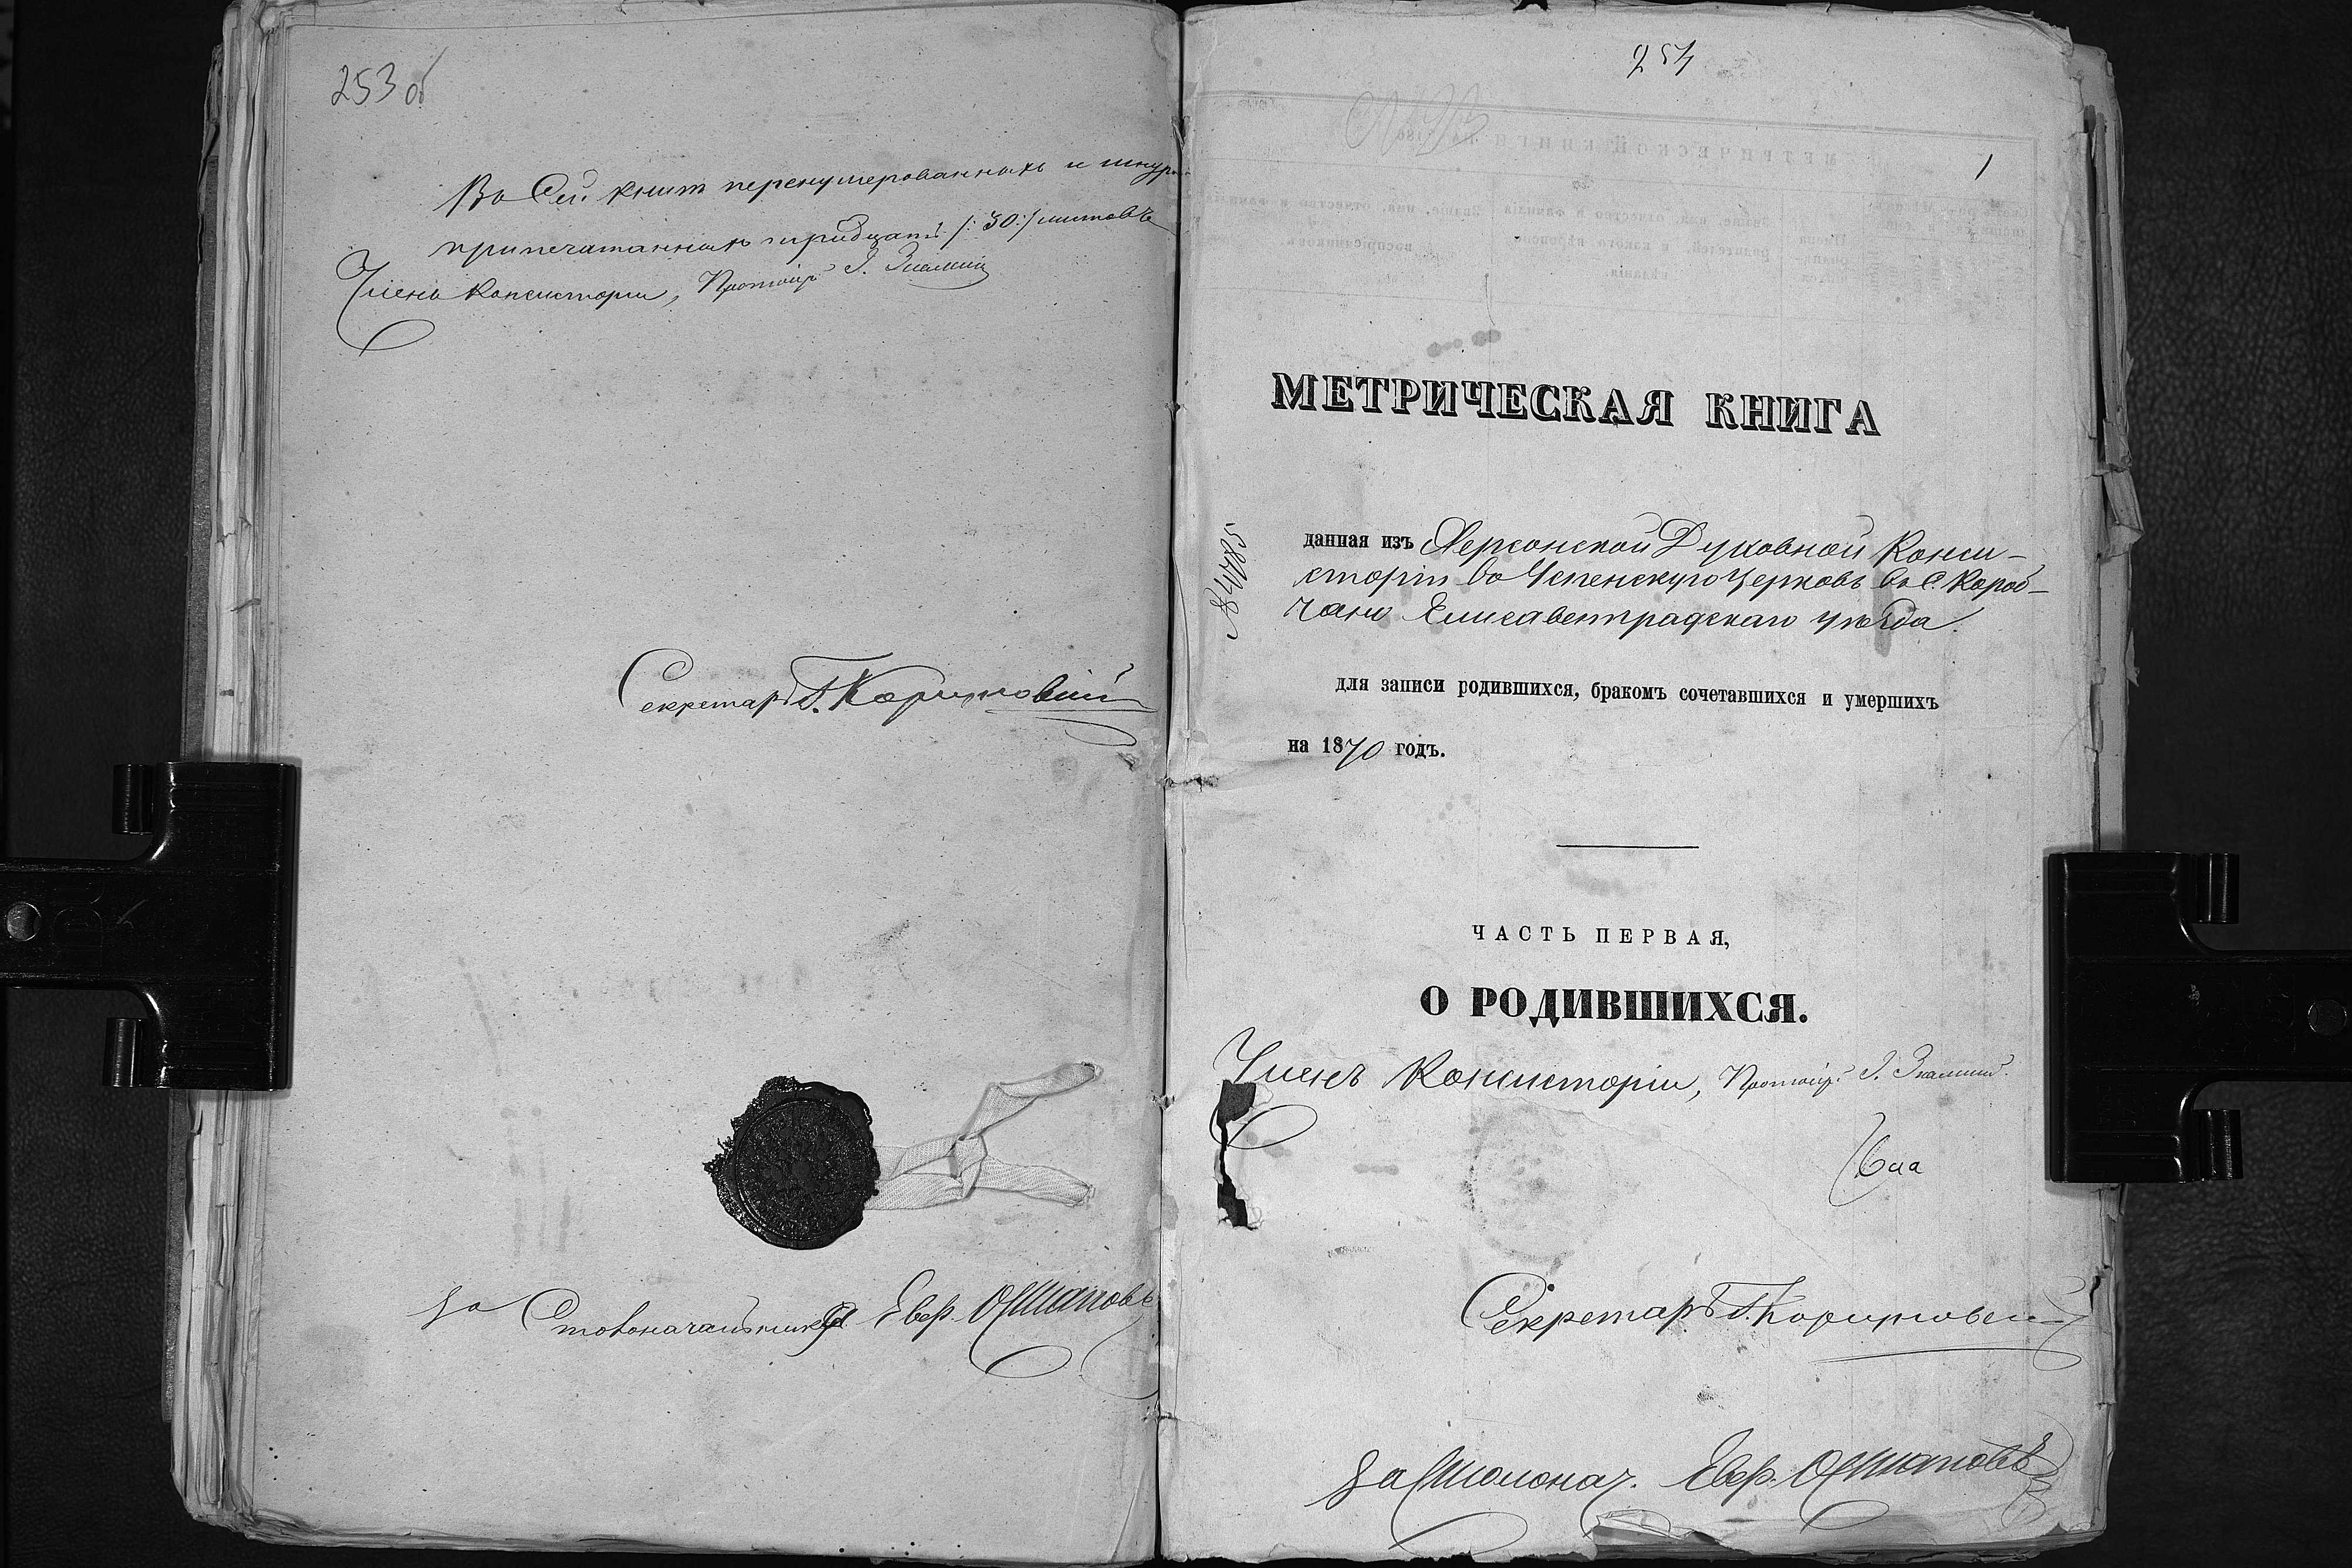 253 об
Въ сей книгѣ перенумерованныхъ и шнуро-
припечатанныхъ тридцать /:30:/ листовъ
Членъ Консисторіи, Протоіер. І. Знамен
Секретарь Г. Корчинскій
За Столоначальника Евф. Осташовъ
254
1
МЕТРИЧЕСКАЯ КНИГА
данная изъ Херсонской Духовной Конси-
сторіи въ Успенскую церковь въ С. Короб-
чано Елисаветградскаго уѣзда.
№ 4785
для записи родившихся, бракомъ сочетавшихся и умершихъ
на 1870 годъ.
ЧАСТЬ ПЕРВАЯ,
О РОДИВШИХСЯ.
Членъ Консисторіи, Протоіер. І.
Секретарь Г.
За Столонач. Евф.